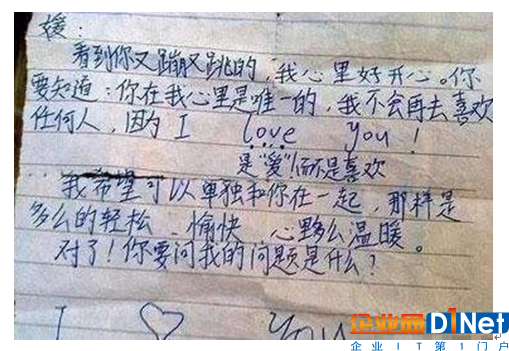 媛：
看到你又蹦又跳的，我心里好开心。你
要知道：你在我心里是唯一的，我不会再去喜欢
任何人，因为 I love you！
是“爱”！而不是喜欢
我希望可以单独和你在一起，那样是
多么的轻松、愉快 心多么温暖。
对了！你要问我的问题是什么？
I ♡ you
企业网D1Net
企业IT第1门户